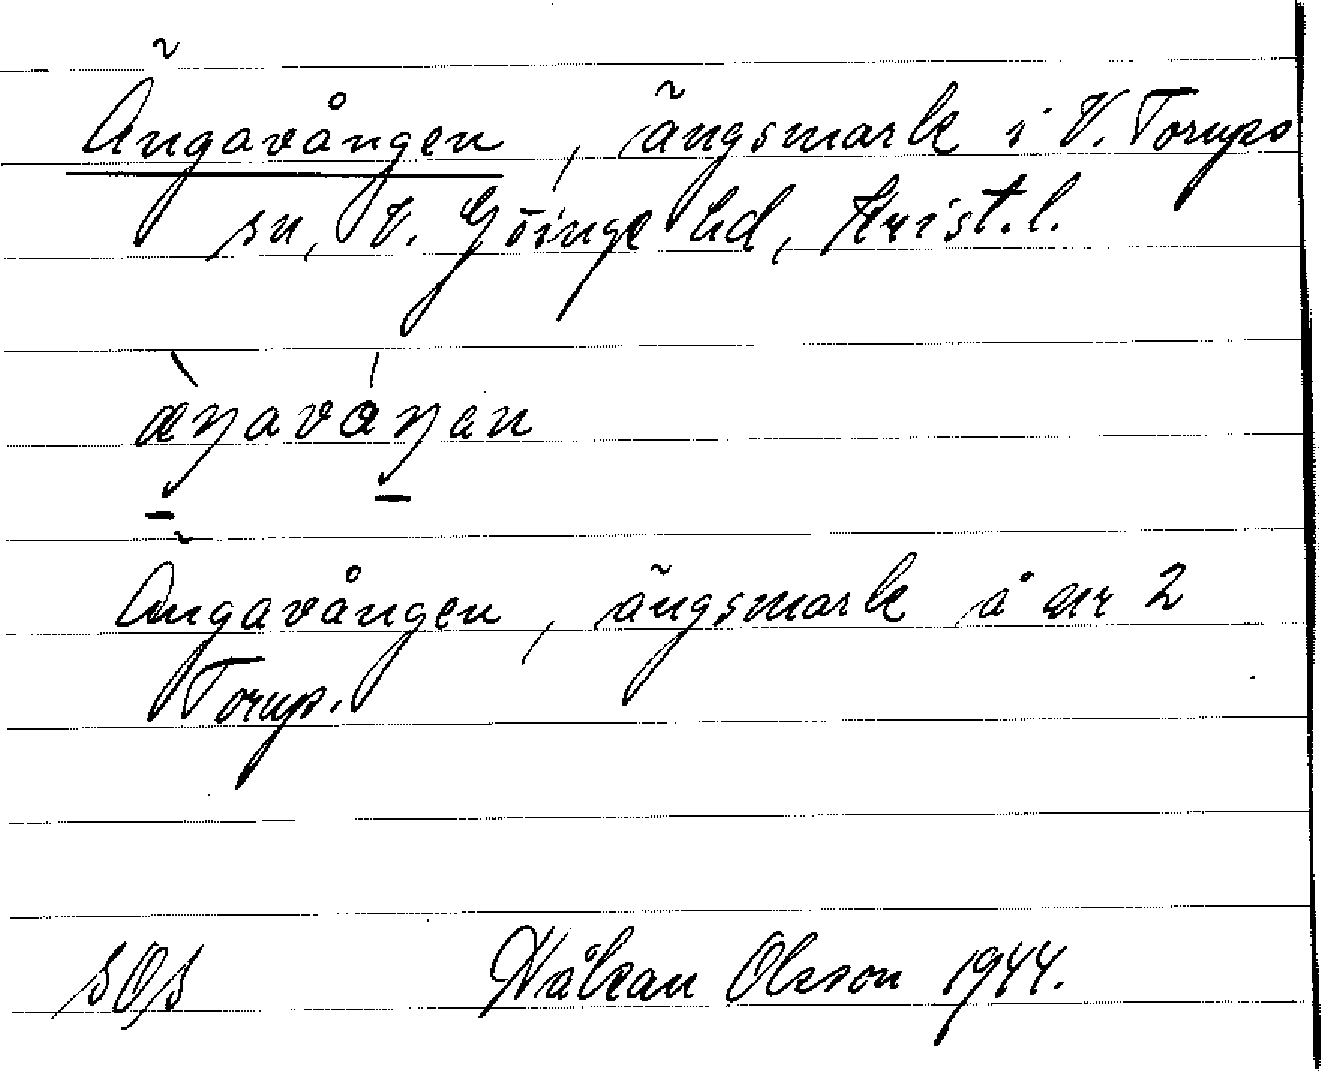 Ängavången, ängsmark i V. Torups
sn, V. Göinge hd, Krist. l.
æŋavåŋen
Ängavången, ängsmark å nr 2
Torup.
sOs Håkan Olsson 1944.